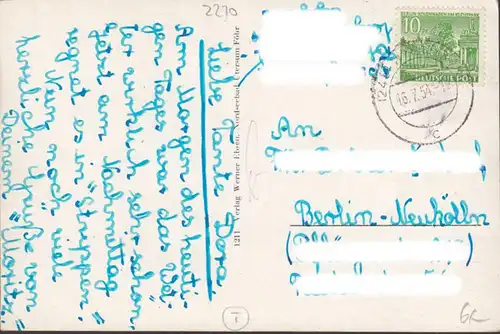 2270
Liebe Tante Dora!
Am Morgen des heuti-
gen Tages war das Wet-
ter wirklich sehr schön.
Jetzt am Nachmittag
regnet es in "Strippen".
Nun noch viele
herzliche Grüße von
Deinem "Moritz".
1211 Verlag Werner Ebern, Nordseebad Utersum Föhr
10
DEUTSCHE POST
16.7.54
c
An
Berlin-Neukölln